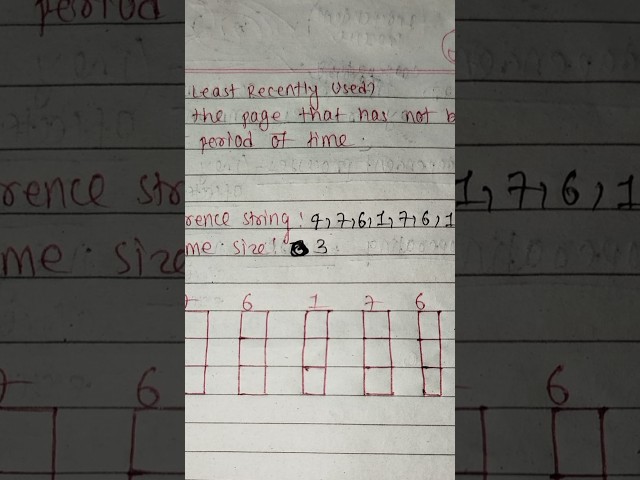 Least Recently Used)
the page that has not b
period of time.
rence string: 4,7,6,1,7,6,1
me size: 3
7 6 1 7 6